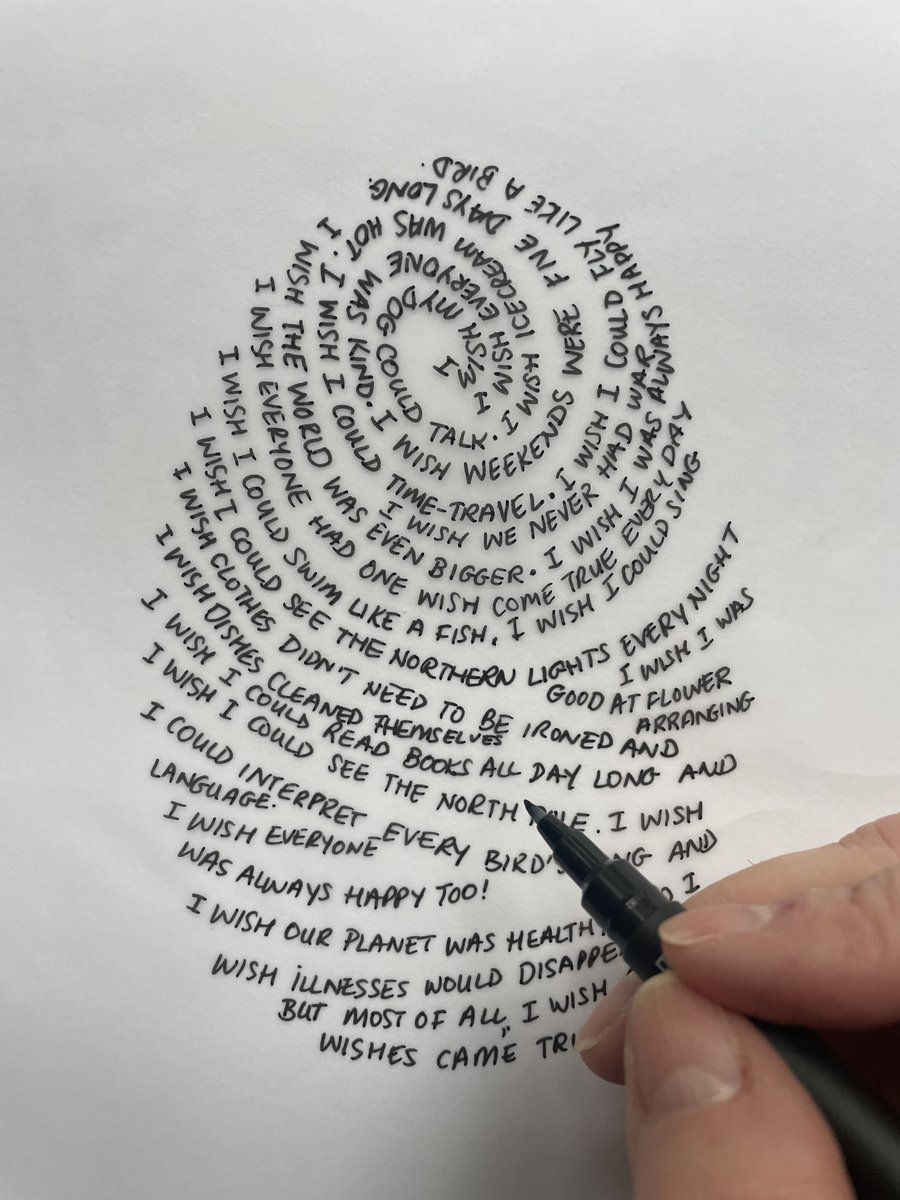 I WISH MY DOG COULD TALK. I WISH ICECREAM WAS HOT. I WISH I COULD TIME-TRAVEL. I WISH I COULD FLY LIKE A BIRD.
I WISH EVERYONE WAS KIND. I WISH WEEKENDS WERE FIVE DAYS LONG.
I WISH WE NEVER HAD WAR
I WISH THE WORLD WAS EVEN BIGGER. I WISH I WAS ALWAYS HAPPY
I WISH EVERYONE HAD ONE WISH COME TRUE EVERY DAY
I WISH I COULD SWIM LIKE A FISH. I WISH I COULD SING
I WISH I COULD SEE THE NORTHERN LIGHTS EVERY NIGHT
I WISH I WAS
GOOD AT FLOWER
ARRANGING
I WISH CLOTHES DIDN'T NEED TO BE IRONED AND
I WISH DISHES CLEANED THEMSELVES
I WISH I COULD READ BOOKS ALL DAY LONG AND
I WISH I COULD SEE THE NORTH . I WISH
I COULD INTERPRET EVERY BIRD'S AND
LANGUAGE.
I WISH EVERYONE
WAS ALWAYS HAPPY TOO!
I WISH OUR PLANET WAS I
WISH ILLNESSES WOULD
BUT MOST OF ALL, I WISH
WISHES CAME